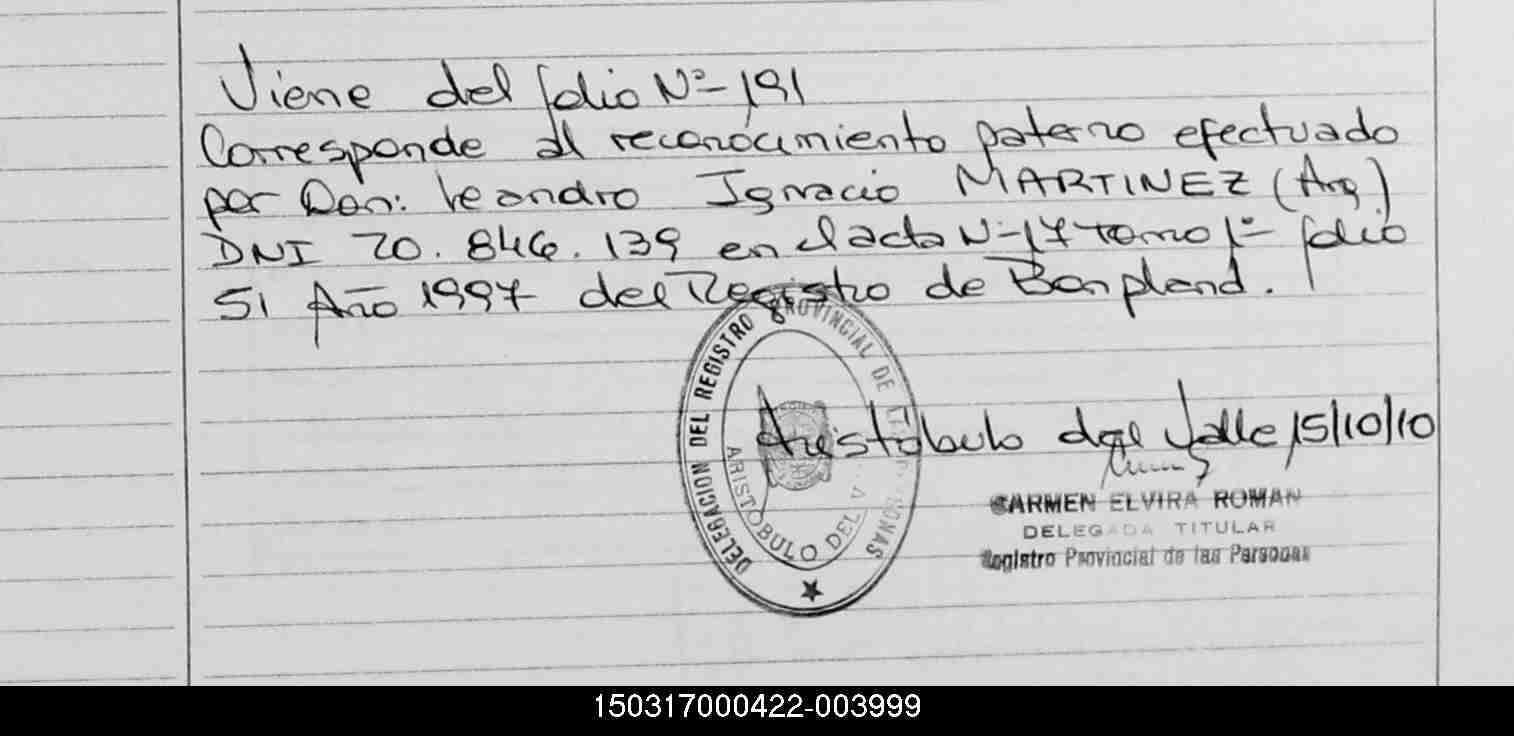 Viene del folio Nº 191
Corresponde al reconocimiento paterno efectuado
por Don: Leandro Ignacio MARTINEZ (Arg)
DNI 20.846.139 en el acta Nº 17 tomo 1º folio
51 Año 1997 del Registro de Bonpland.
DELEGACION DEL REGISTRO PROVINCIAL DE
ARISTOBULO DEL V
Aristóbulo del Valle 15/10/10
CARMEN ELVIRA ROMAN
DELEGADA TITULAR
Registro Provincial de las Personas
150317000422-003999